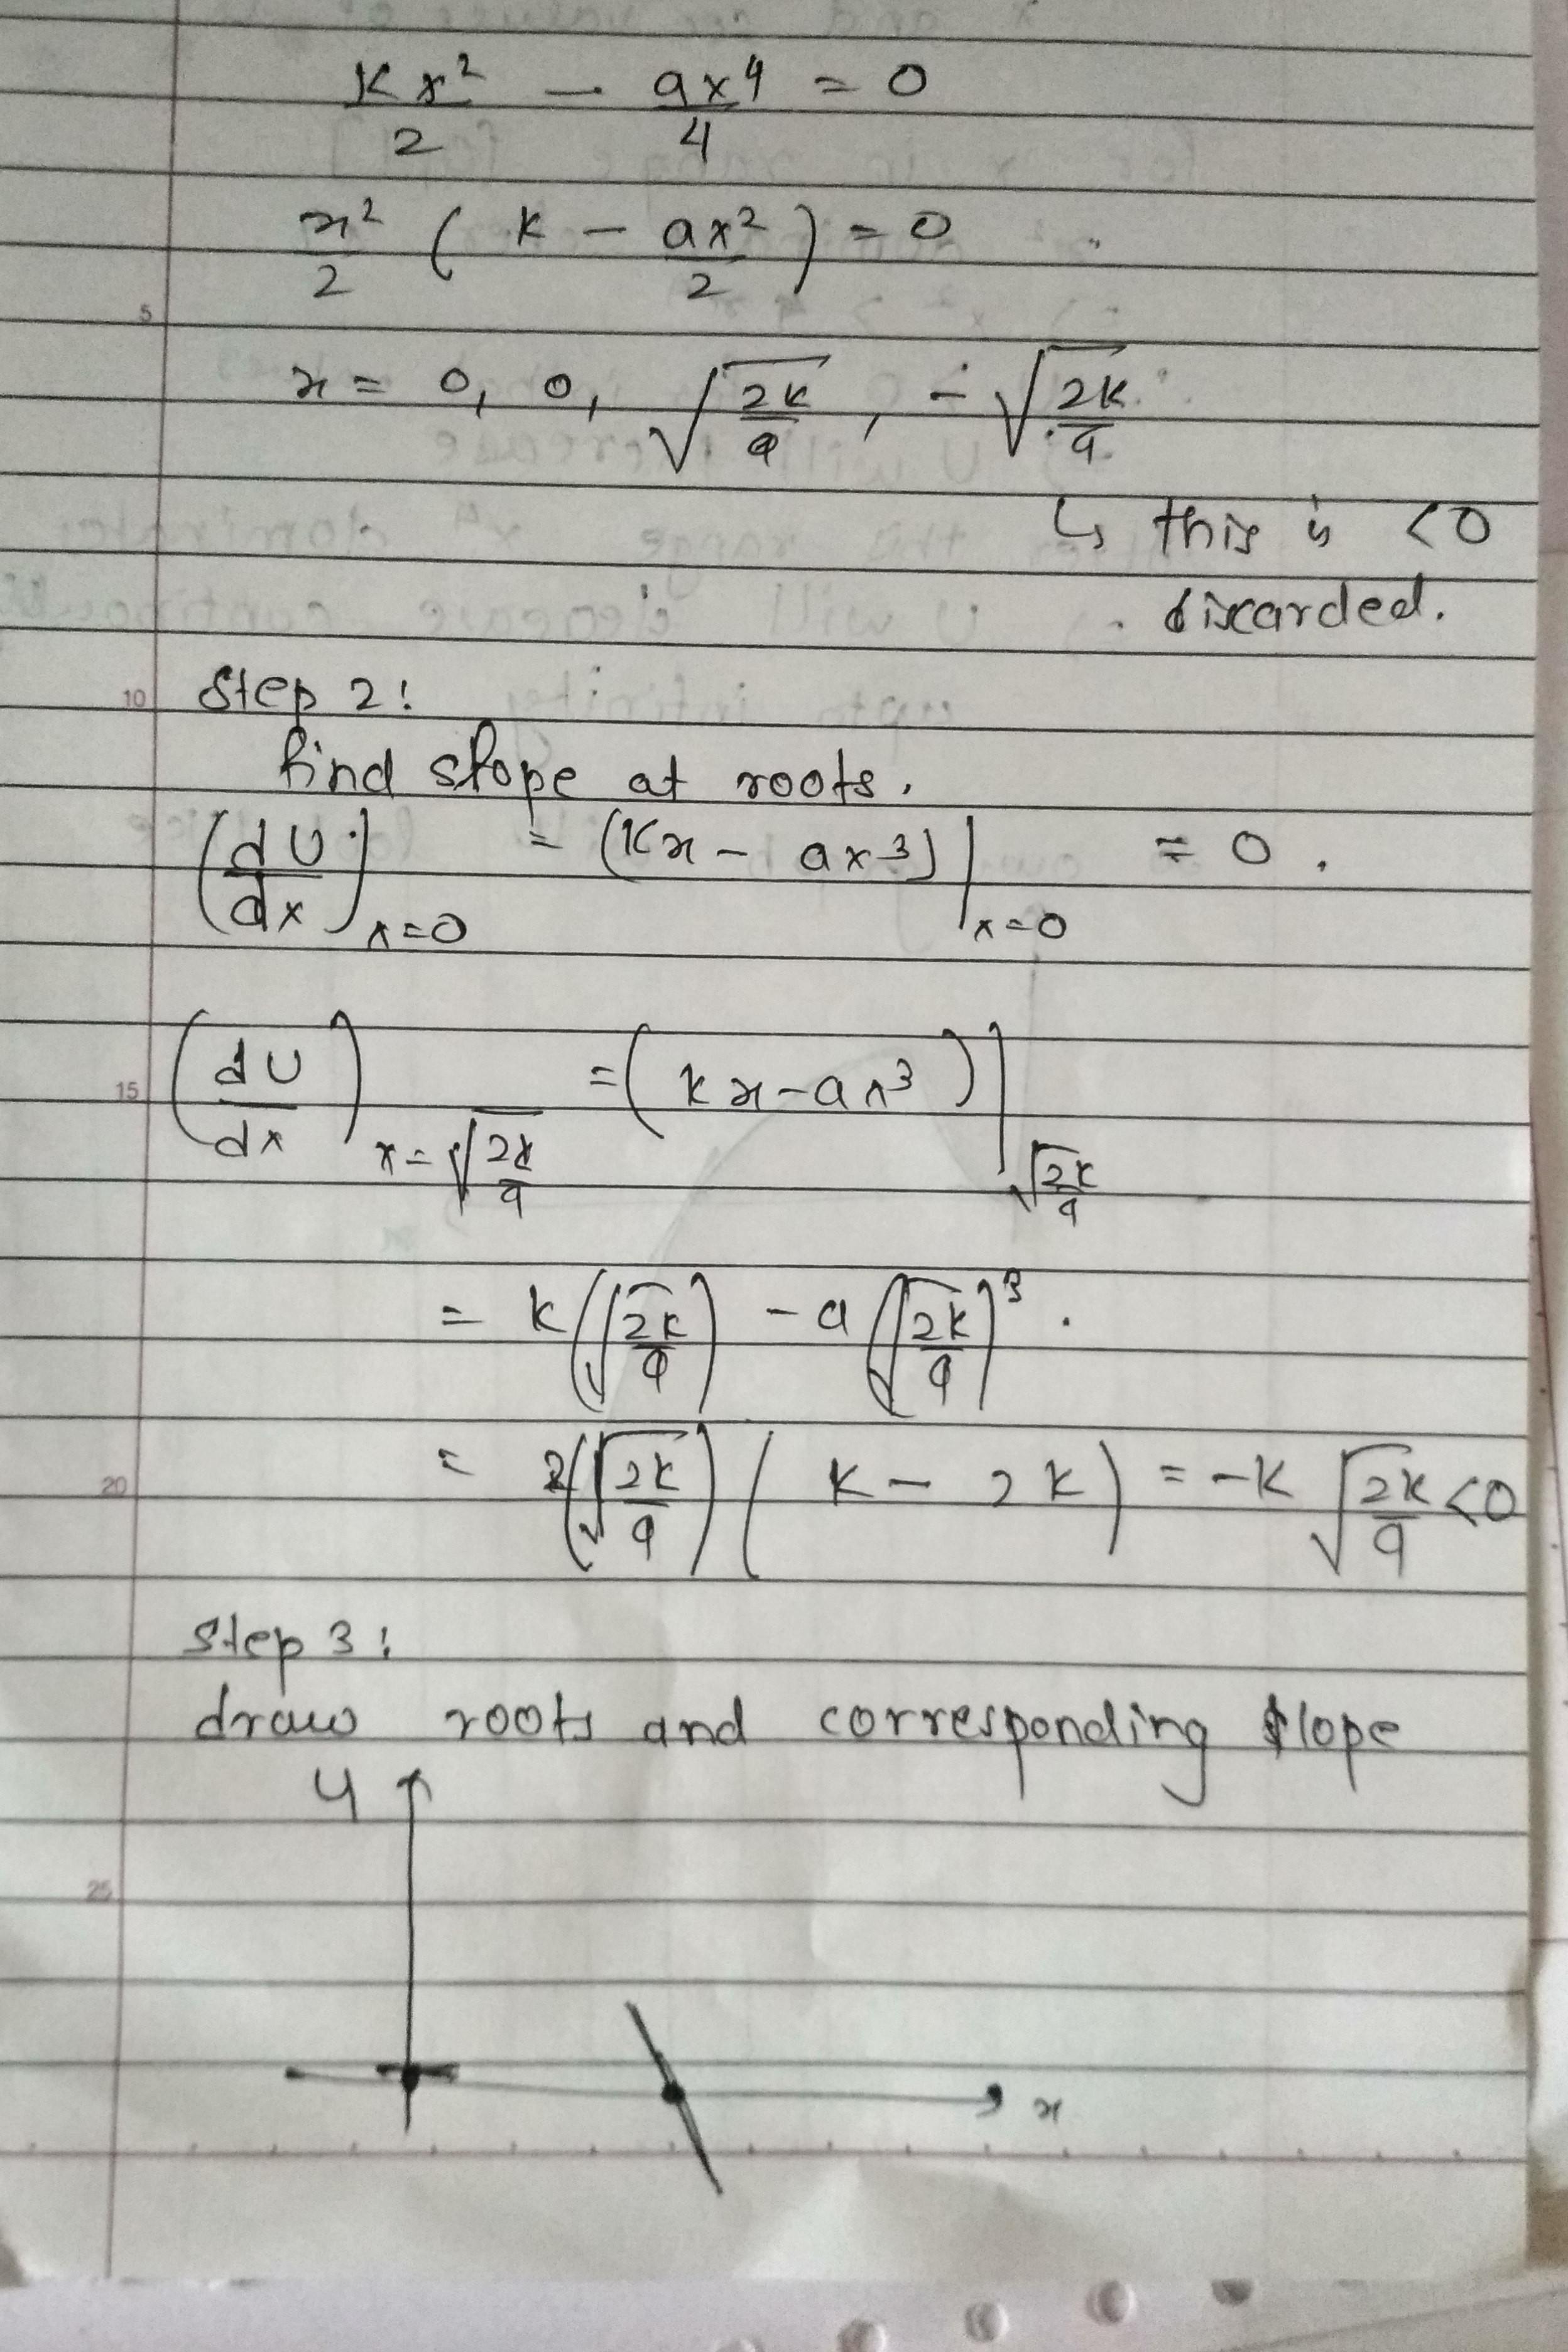 Kx²/2 - ax⁴/4 = 0
x²/2 ( K - ax²/2 ) = 0
5
x = 0, 0, √(2K/a), -√(2K/a)
↳ this is <0
discarded.
10 Step 2:
find slope at roots.
(dU/dx)x=0 = (Kx - ax³)|x=0 = 0.
15 (dU/dx)x=√(2K/a) = (Kx-ax³)|√(2K/a)
= K(√(2K/a)) - a(√(2K/a))³.
20 = (√(2K/a)) (K - 2K) = -K √(2K/a) <0
Step 3:
draw roots and corresponding slope
U
25
x